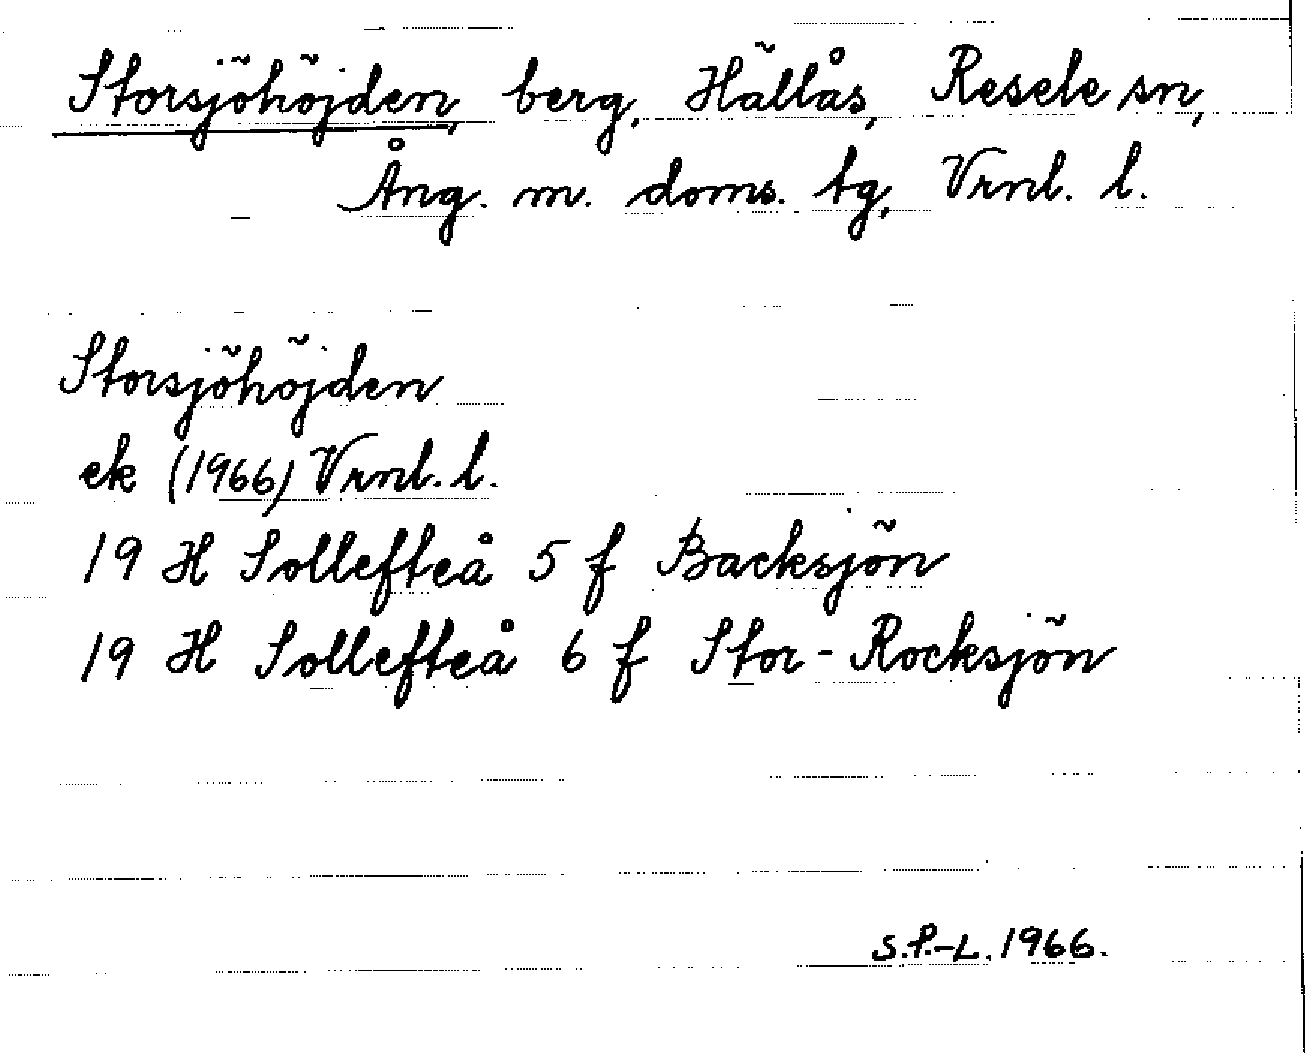 Storsjöhöjden, berg, Hällås, Resele sn,
Ång. m. doms. tg, Vrnl. l.
Storsjöhöjden
ek (1966) Vrnl. l.
19 H Sollefteå 5 f Backsjön
19 H Sollefteå 6 f Stor-Rocksjön
S.P.-L. 1966.